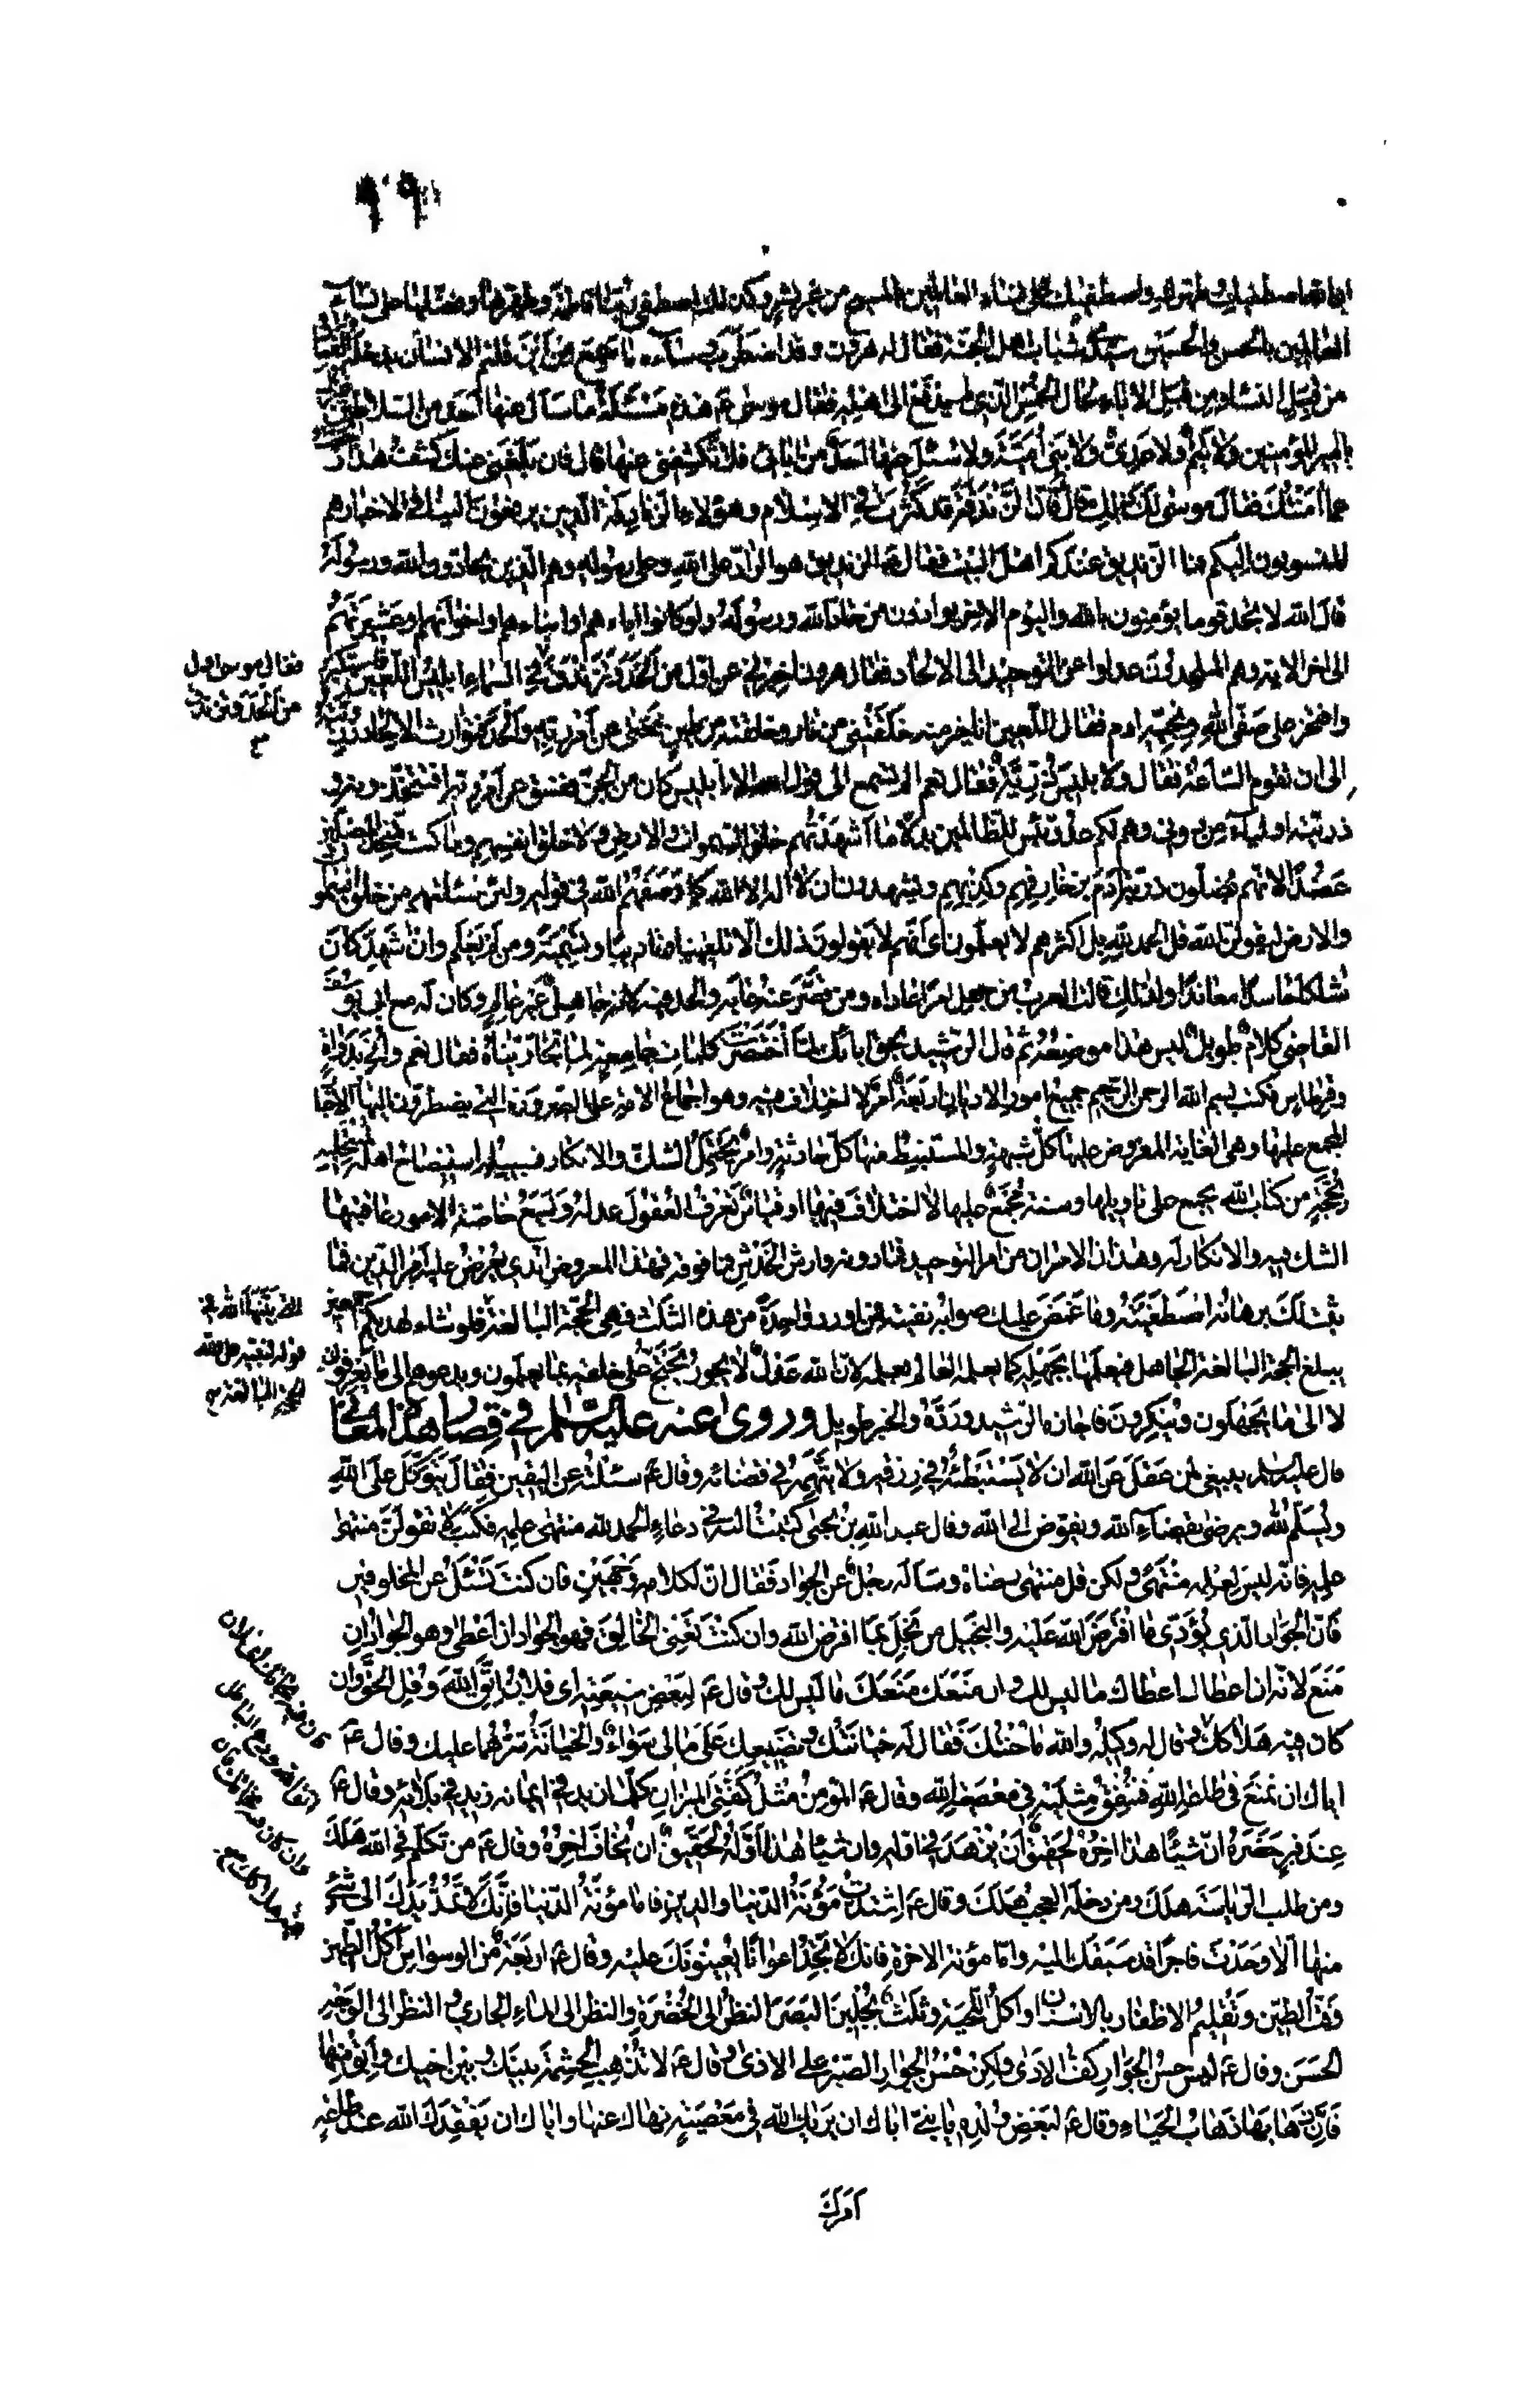 ان الله اصطفيك وطهرك واصطفيك على نساء العالمين بالمسيح من غير بشر وكذلك اصطفى ربنا فاطمة وطهرها وفضلها على نساء
العالمين بالحسن والحسين سيدى شباب اهل الجنة فقال له هرون وقد اضطرب وساءه ما سمع من اين قلتم الانسان يدخله الفساد
من قبل النساء ومن قبل الاباء بحال الخمس الذى لم يدفع الى اهله فقال موسى ع هذه مسئلة ما سأل عنها احد من السلاطين
يا امير المؤمنين ولا تيم ولا عدى ولا بنى امية ولا سئل عنها احد من ابائى فلا تكشفنى عنها قال فان بلغنى عنك كشف هذا رجعت
عما امنتك فقال موسى لك ذلك قال فان الزندقة قد كثرت فى الاسلام وهؤلاء الزنادقة الذين يرفعون الينا فى الاخبار هم
المنسوبون اليكم فما الزنديق عندكم اهل البيت فقال ع الزنديق هو الراد على الله وعلى رسوله وهم الذين يحادون الله ورسوله
قال الله لا تجد قوما يؤمنون بالله واليوم الاخر يوادون من حاد الله ورسوله ولو كانوا اباءهم او ابناءهم او اخوانهم او عشيرتهم
الى اخر الاية وهم الملحدون عدلوا عن التوحيد الى الالحاد فقال هرون اخبرنى عن اول من الحد وتزندق فى السماء ابليس اللعين فاستكبر
وافتخر على صفى الله ونجيه ادم فقال اللعين انا خير منه خلقتنى من نار وخلقته من طين فعتى عن امر ربه والحد فتوارث الالحاد ذريته
الى ان تقوم الساعة فقال ولابليس ذرية فقال نعم الم تسمع الى قول الله الا ابليس كان من الجن ففسق عن امر ربه افتتخذونه و
ذريته اولياء من دونى وهم لكم عدو بئس للظالمين بدلا ما اشهدتهم خلق السموات والارض ولا خلق انفسهم وما كنت متخذ المضلين
عضدا لانهم يضلون ذرية ادم بزخارفهم وكذبهم ويشهدون ان لا اله الا الله كما وصفهم الله فى قوله ولئن سئلتهم من خلق السموات
والارض ليقولن الله قل الحمد لله بل اكثرهم لا يعلمون اى انهم لا يقولون ذلك الا تلقينا وتأديبا وتسمية ومن لم يعلم وان شهد كان
شاكا حاسدا معاندا ولذلك قالت العرب من جهل امرا عاداه ومن قصر عنه عابه والحد فيه لانه جاهل غير عالم وكان له مع ابى يوسف
القاضى كلام طويل ليس هذا موضعه ثم قال الرشيد بحق ابائك لما اختصرت كلمات جامعة لما تجاريناه فقال نعم واتى بدواة
وقرطاس فكتب بسم الله الرحمن الرحيم جميع امور الاديان اربعة امر لا اختلاف فيه وهو اجماع الامة على الضرورة التى يضطرون اليها الاخبار
المجمع عليها وهى الغاية المعروض عليها كل شبهة والمستنبط منها كل حادثة وامر يحتمل الشك والانكار فسبيله استيضاح اهله لمنتحليه
بحجة من كتاب الله مجمع على تاويلها وسنة مجمع عليها لا اختلاف فيها او قياس تعرف العقول عدله ولا تسع خاصة الامة وعامتها
الشك فيه والانكار له وهذان الامران من امر التوحيد فما دونه وارش الخدش فما فوقه فهذا المعروض الذى يعرض عليه امر الدين فما
ثبت لك برهانه اصطفيته وما غمض عليك صوابه نفيته فمن اورد واحدة من هذه الثلث فهى الحجة البالغة فلو شاء لهديكم اجمعين
يبلغ الحجة البالغة الجاهل فيعلمها بجهله كما يعلمه العالم بعلمه لان الله عدل لا يجور يحتج على خلقه بما يعلمون ويدعوهم الى ما يعرفون
لا الى ما يجهلون وينكرون فاجازه الرشيد ورده والخبر طويل وروى عنه عليه السلام فى قصار هذه المعانى
قال عليه السلام ينبغى لمن عقل عن الله ان لا يستبطئه فى رزقه ولا يتهمه فى قضائه وقال ع سئلته عن اليقين فقال يتوكل على الله
ويسلم لله ويرضى بقضاء الله ويفوض الى الله وقال عبد الله بن يحيى كتبت اليه فى دعاء الحمد لله منتهى علمه فكتب لا تقولن منتهى
علمه فانه ليس لعلمه منتهى ولكن قل منتهى رضاه وسأله رجل عن الجواد فقال ان لكلامك وجهين فان كنت تسئل عن المخلوقين
فان الجواد الذى يؤدى ما افترض الله عليه والبخيل من بخل بما افترض الله وان كنت تعنى الخالق فهو الجواد ان اعطى وهو الجواد ان
منع لانه ان اعطاك اعطاك ما ليس لك وان منعك منعك ما ليس لك وقال ع لبعض شيعته اى فلان اتق الله وقل الحق وان
كان فيه هلاكك وقال له وكيله والله ما خنتك فقال له خيانتك وتضييعك على مالى سواء والخيانة شرهما عليك وقال ع
اياك ان تمنع فى طاعة الله فتنفق مثليه فى معصية الله وقال ع المؤمن مثل كفتى الميزان كلما زيد فى ايمانه زيد فى بلائه وقال ع
عند قبر حضره ان شيئا هذا اخره لحقيق ان يزهد فى اوله وان شيئا هذا اوله لحقيق ان يخاف اخره وقال ع من تكلم فى الله هلك
ومن طلب الرياسة هلك ومن دخله العجب هلك وقال ع اشتدت مؤنة الدنيا والدين فاما مؤنة الدنيا فانك لا تمد يدك الى شئ
منها الا وجدت فاجرا قد سبقك اليه واما مؤنة الاخرة فانك لا تجد اعوانا يعينونك عليه وقال ع اربعة من الوسواس اكل الطين
وفت الطين وتقليم الاظفار بالاسنان واكل اللحية وثلث يجلين البصر النظر الى الخضرة والنظر الى الماء الجارى والنظر الى الوجه
الحسن وقال ع ليس حسن الجوار كف الاذى ولكن حسن الجوار الصبر على الاذى وقال ع لا تذهب الحشمة بينك وبين اخيك وابق منها
فان ذهابها ذهاب الحياء وقال ع لبعض ولده يا بنى اياك ان يراك الله فى معصية نهاك عنها واياك ان يفقدك الله عند طاعة
امرك
فقال موسى اول
من الحد وتزندق